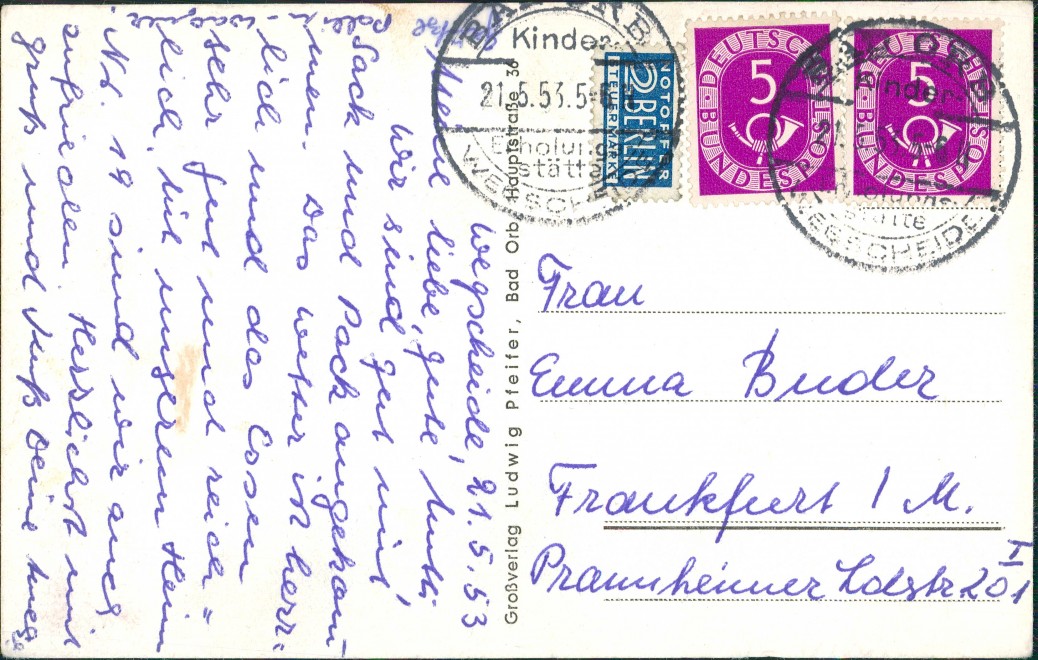 Wegscheide, 21.5.53
Meine liebe, gute Mutti
Wir sind gut mit
Sack und Pack angekom-
men. Das Wetter ist herr-
lich und das Essen
sehr gut und reich=
lich. Mit unserem Heim
Nr. 19 sind wir auch
zufrieden. Herzlichst mit
Gruß und Kuß Deine
Großverlag Ludwig Pfeifer, Bad Orb Hauptstraße 36
BAD ORB
Kinder-
21.5.53.5-6
Erholungs-
stätte
WEGSCHEIDE
NOTOPFER
2 BERLIN
STEUERMARKE
DEUTSCHE
5
BUNDESPOST
DEUTSCHE
5
BUNDESPOST
BAD ORB
Kinder-
Erholungs-
stätte
WEGSCHEIDE
Frau
Emma Buder
Frankfurt / M.
Praunheimer Ldstr 201 I